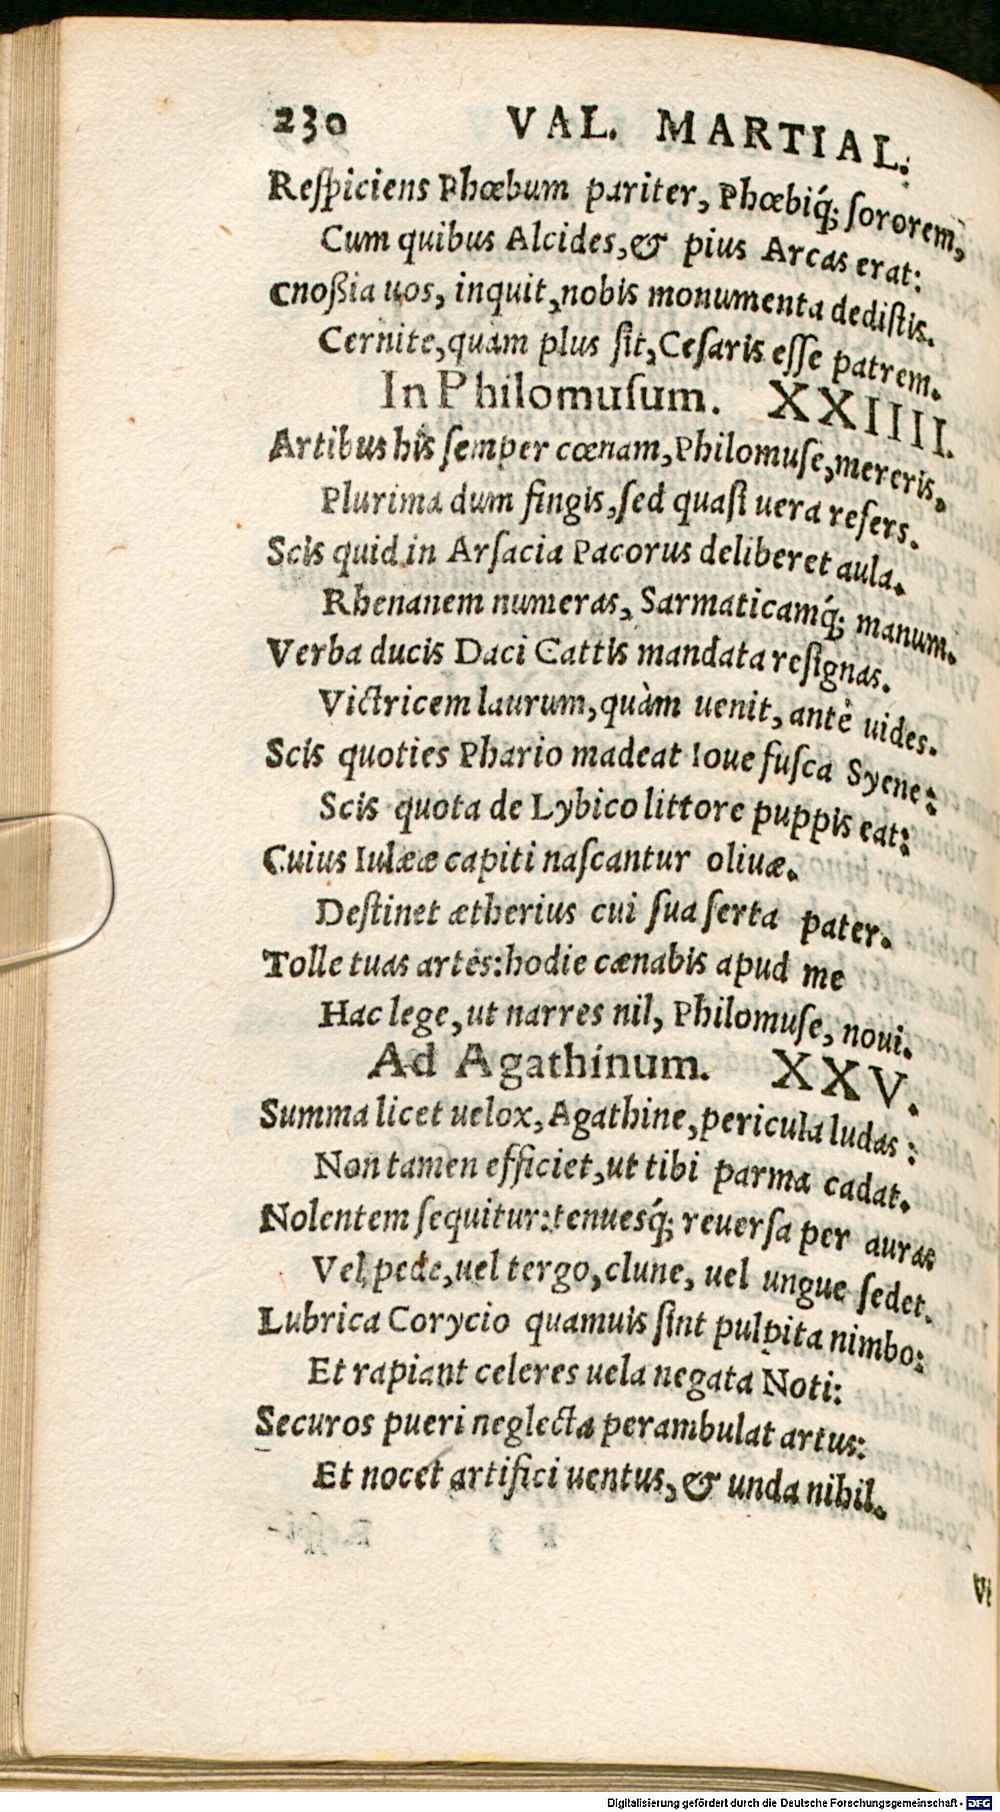 230 VAL. MARTIAL.
Reſpiciens Phœbum pariter, Phœbiq́; ſororem,
Cum quibus Alcides, & pius Arcas erat:
Cnoßia uos, inquit, nobis monumenta dediſtis.
Cernite, quàm plus ſit, Ceſaris eſſe patrem.
In Philomuſum. XXIIII.
Artibus his ſemper cœnam, Philomuſe, mereris,
Plurima dum fingis, ſed quaſi uera refers.
Scis quid in Arſacia Pacorus deliberet aula.
Rhenanem numeras, Sarmaticamq́; manum.
Verba ducis Daci Cattis mandata reſignas.
Victricem laurum, quàm uenit, antè uides.
Scis quoties Phario madeat Ioue fuſca Syene:
Scis quota de Lybico littore puppis eat:
Cuius Iulææ capiti naſcantur oliuæ.
Deſtinet ætherius cui ſua ſerta pater.
Tolle tuas artes: hodie cænabis apud me
Hac lege, ut narres nil, Philomuſe, noui.
Ad Agathinum. XXV.
Summa licet uelox, Agathine, pericula ludas:
Non tamen efficiet, ut tibi parma cadat.
Nolentem ſequitur: tenuesq́; reuerſa per auras
Vel pede, uel tergo, clune, uel ungue ſedet.
Lubrica Corycio quamuis ſint pulpita nimbo:
Et rapiant celeres uela negata Noti:
Securos pueri neglecta perambulat artus:
Et nocet artifici uentus, & unda nihil.
Vt
Digitalisierung gefördert durch die Deutsche Forschungsgemeinschaft - DFG